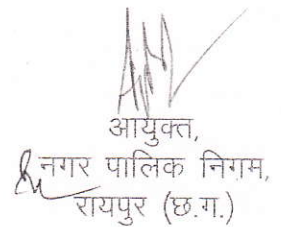 आयुक्त,
नगर पालिक निगम,
रायपुर (छ.ग.)